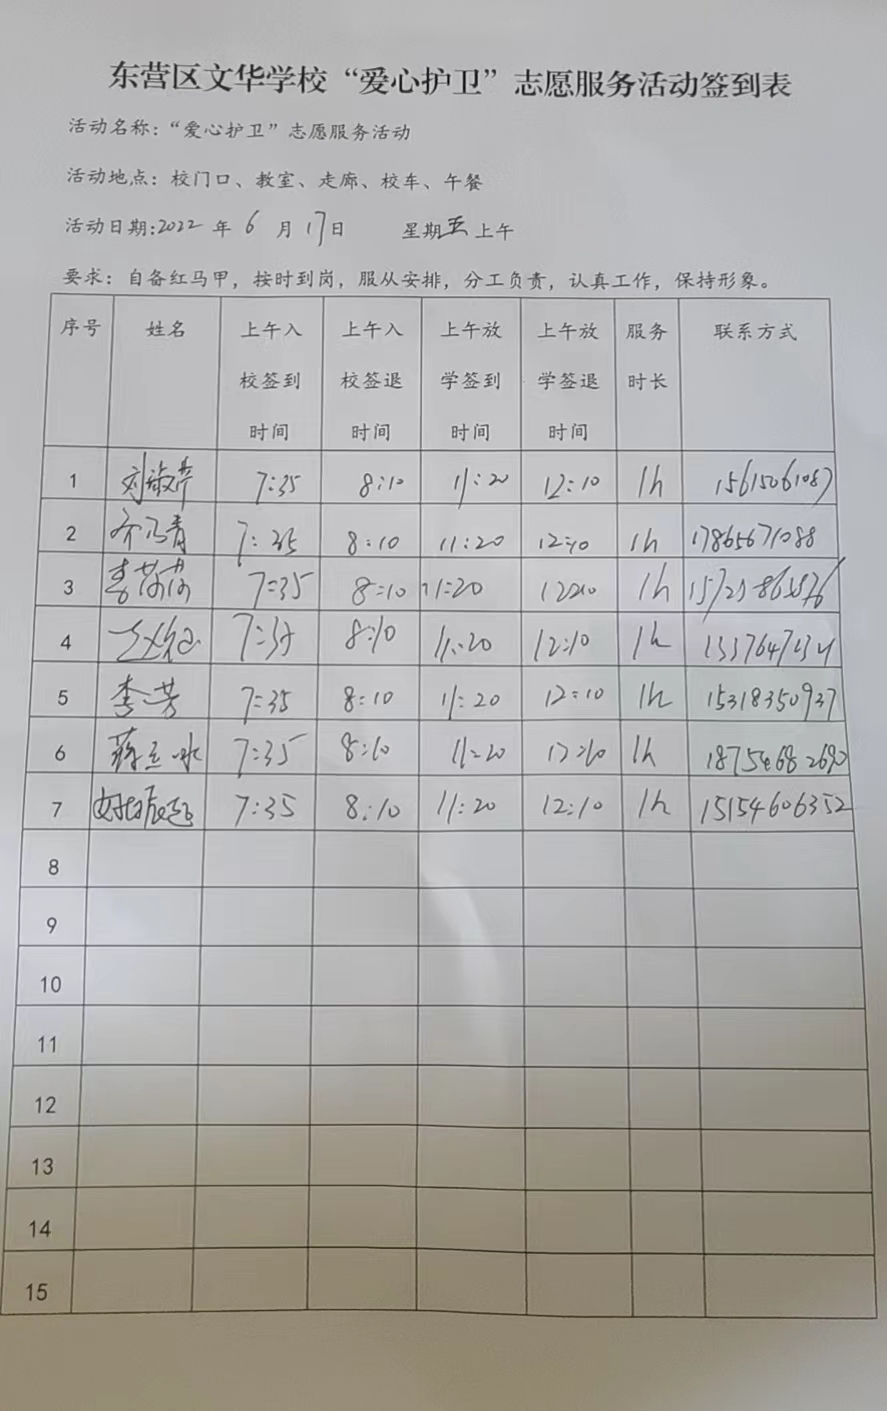 东营区文华学校“爱心护卫”志愿服务活动签到表
活动名称：“爱心护卫”志愿服务活动
活动地点：校门口、教室、走廊、校车、午餐
活动日期:2022 年 6 月 17日 星期五上午
要求：自备红马甲，按时到岗，服从安排，分工负责，认真工作，保持形象。
序号 姓名 上午入校签到时间 上午入校签退时间 上午放学签到时间 上午放学签退时间 服务时长 联系方式
1 刘淑苹 7:35 8:10 11:20 12:10 1h 15615061087
2 7:35 8:10 11:20 12:10 1h 17865671088
3 7:35 8:10 11:20 1h
4 8:10 11:20 12:10 1h
5 李芳 7:35 8:10 11:20 12:10 1h 15318350937
6 7:35 8:10 11:20 12:10 1h 18754682690
7 7:35 8:10 11:20 12:10 1h 15154606352
8
9
10
11
12
13
14
15